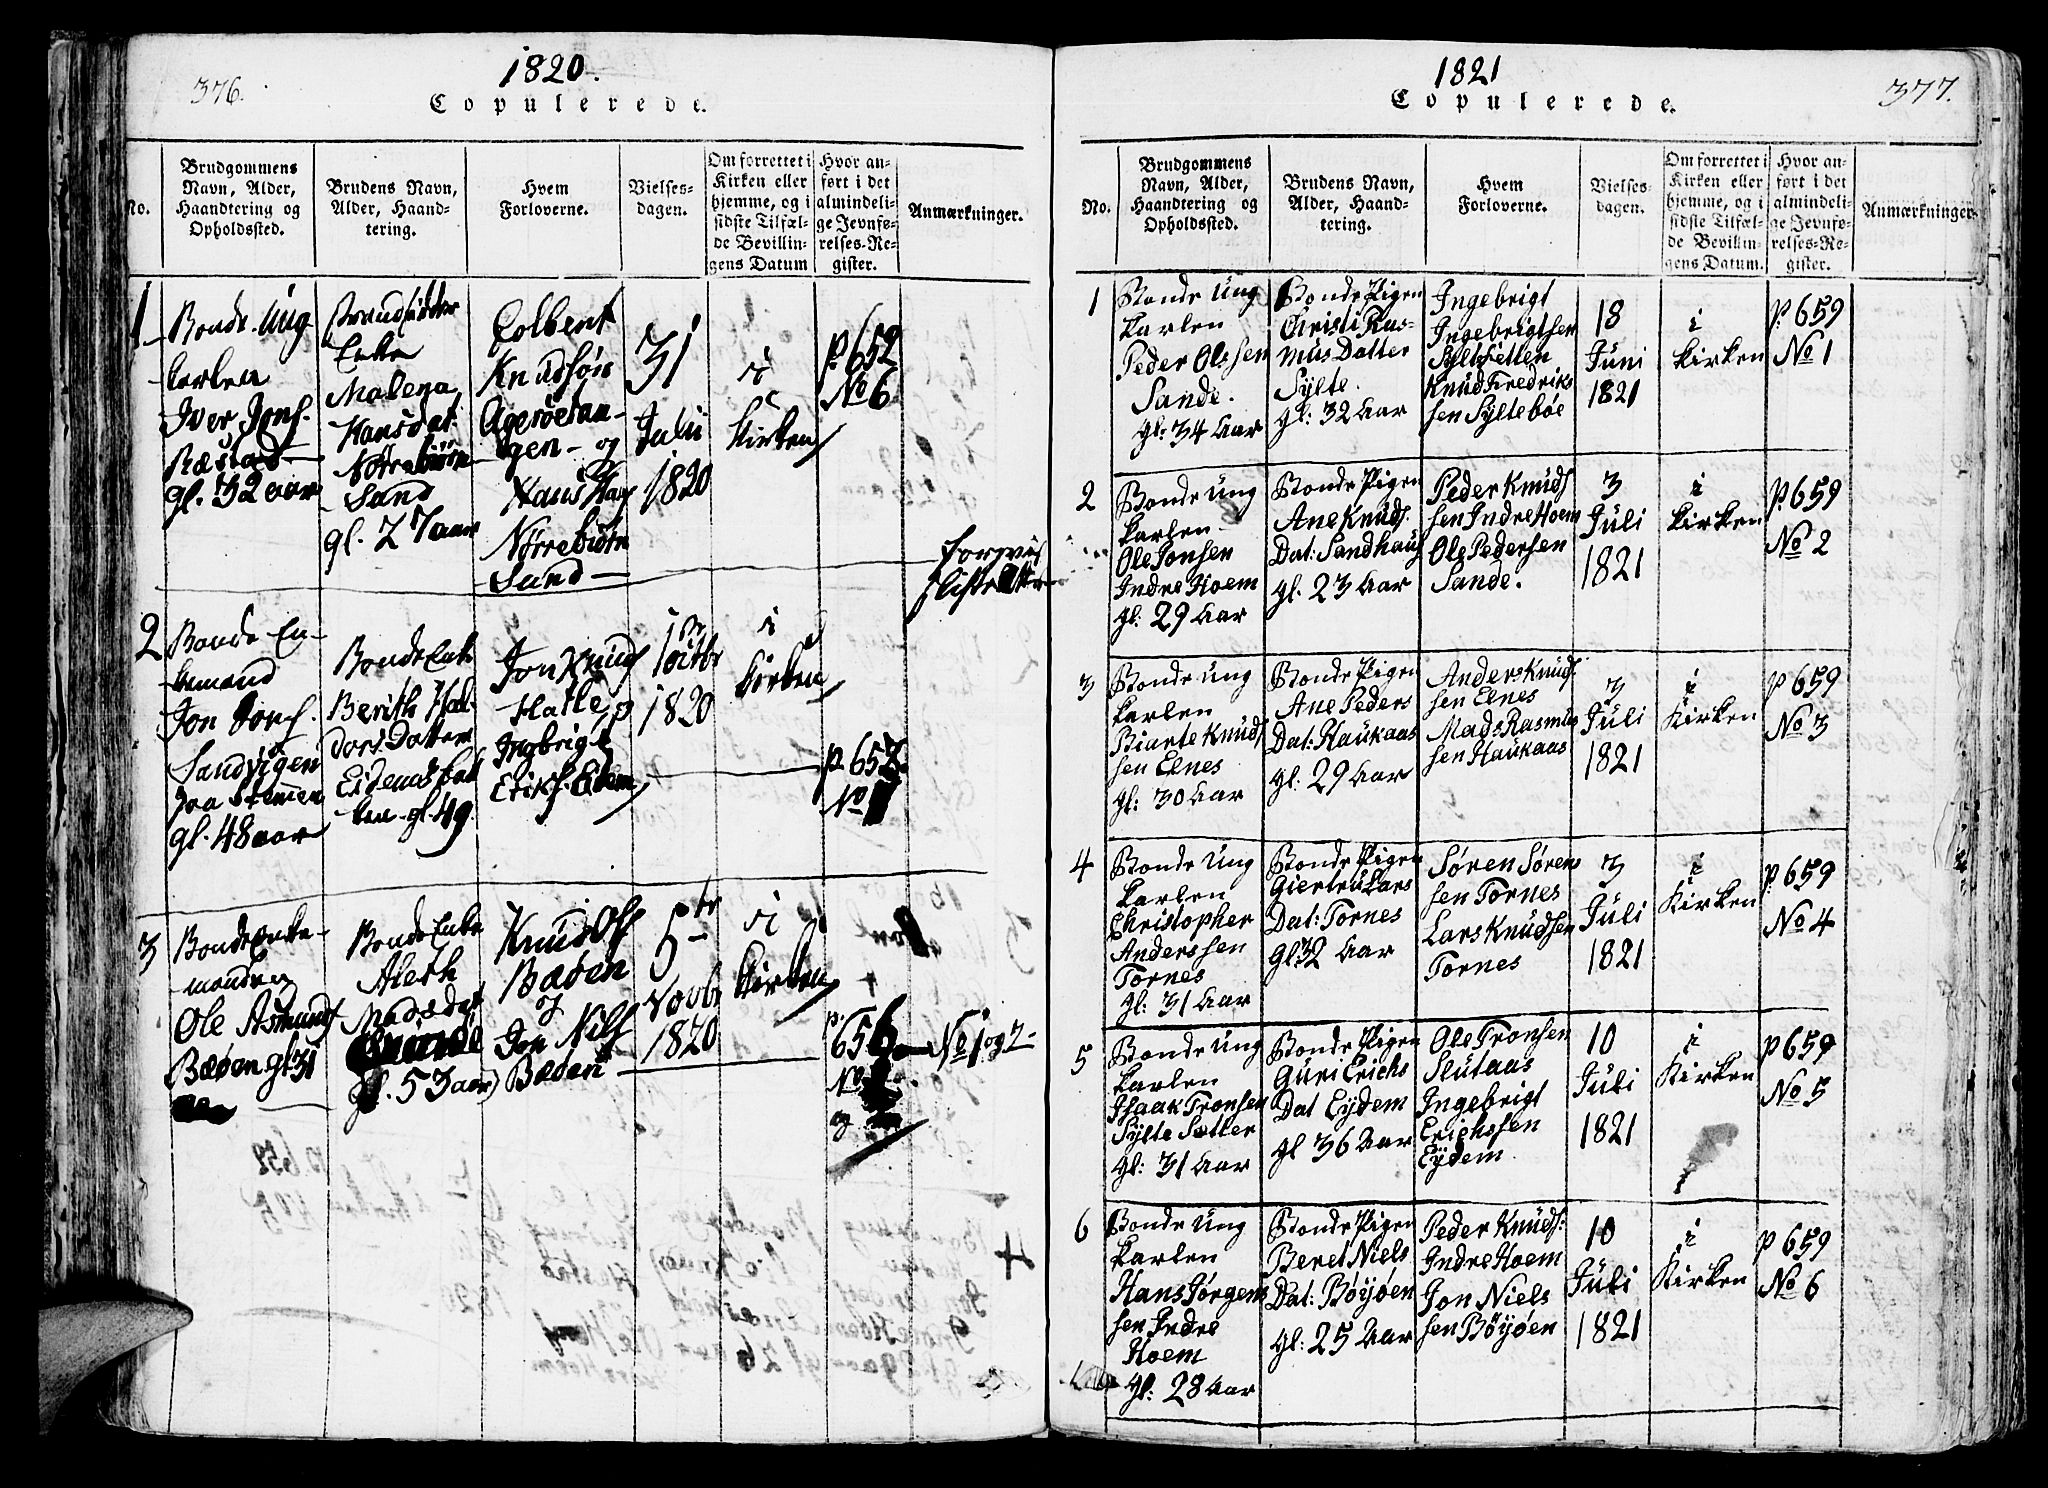 376.
1820.
Copulerede.
No.
Brudgommens
Navn, Alder,
Haandtering og
Opholdssted.
Brudens Navn,
Alder, Haand-
tering.
Hvem
Forloverne.
Vielses-
dagen.
Om forrettet i
Kirken eller
hjemme, og i
sidste Tilfæl-
de Bevillin-
gens Datum
Hvor an-
ført i det
almindeli-
ge Jevnfø-
relses-Re-
gister.
Anmærkninger.
1
Bonde Ung-
karlen
Iver Jons.
gl. 32 aar
Enke
Malena
Hansdat.
Nørrebiørn
Sand
gl. 27 aar
Colbent
Knudsøn
Agerøetan-
gen - og
Hans
Nørrebiørn
Sand
31
Julii
1820
i
Kirken
p. 652
No 6
2
Bonde En-
kemand
Jon Jons.
Sandvigen
paa Stemmen
gl. 48 aar
Bonde Enke
Berith Hal-
dors Datter
gl. 49
Jon Knuds
Hatle, og
Ingbrigt
Eriks. Eidem
1820
i
Kirken
p. 657
No 1
3
Bonde Enke-
manden
Ole Asmunds
Bæøen gl 31
Bonde Enke
Aleth
Madsdat
gl. 53 aar
Knud Ols
Bæøen
og
Jon Nils
Bæøen
5te
Novbr
1820
i
Kirken
p.
656
No
og
No 1 og 2
1821
Copulerede.
377.
No.
Brudgommens
Navn, Alder,
Haandtering og
Opholdssted.
Brudens Navn,
Alder, Haand-
tering.
Hvem
Forloverne.
Vielses-
dagen.
Om forrettet i
Kirken eller
hjemme, og i
sidste Tilfæl-
de Bevillin-
gens Datum.
Hvor an-
ført i det
almindeli-
ge Jevnfø-
relses-Re-
gister.
Anmærkninger
1
Bonde Ung
karlen
Peder Olssen
Sande.
gl: 34 Aar
Bonde Pigen
Christi Ras-
mus Datter
Sylte.
gl: 32 Aar
Ingebrigt
Ingebrigtsen
Syltesetten
Knud Fredriks
sen Syltebøe
18
Juni
1821
i
Kirken
p. 659
No 1
2
Bonde Ung
karlen
Ole Jonsen
Indre Hoem
gl: 29 Aar
Bonde Pigen
Ane Knuds.
Dat: Sandhaug
gl. 23 Aar
Peder Knuds
sen Indre Hoem
Ole Pedersen
Sande.
3
Juli
1821
i
Kirken
p. 659
No 2
3
Bonde Ung
karlen
Biarte Knuds
sen Elnes
gl: 30 Aar
Bonde Pigen
Ane Peders
Dat: Haukaas
gl: 29 Aar
Anders Knuds.
sen Elnes
Mads Rasmus
sen Haukaas
3
Juli
1821
i
Kirken
p 659
No 3
4
Bonde Ung
karlen
Christopher
Anderssen
Tornes
gl: 31 Aar
Bonde Pigen
Giertru Lars
Dat: Tornes
Gl: 32 Aar
Søren Sørens
sen Tornes
Lars Knudsen
Tornes
3
Juli
1821
i
Kirken
p. 659
No 4
5
Bonde Ung
karlen
Isaak Tronsen
Sylte Sætter
gl: 31 Aar
Bonde Pigen
Guri Erichs
Dat Eydem
gl 36 Aar
Ole Tronsen
Slutaas
Ingebrigt
Erichssen
Eydem.
10
Juli
1821
i
Kirken
p 659
No 5
6
Bonde Ung
karlen
Hans Jørgens
sen Indre
Hoem
gl: 28 Aar
Bonde Pigen
Beret Niels
Dat: Bøyøen
gl: 25 Aar
Peder Knuds:
Indre Hoem
Jon Niels
sen Bøyøen
10
Juli
1821
i
Kirken
p 659
No 6